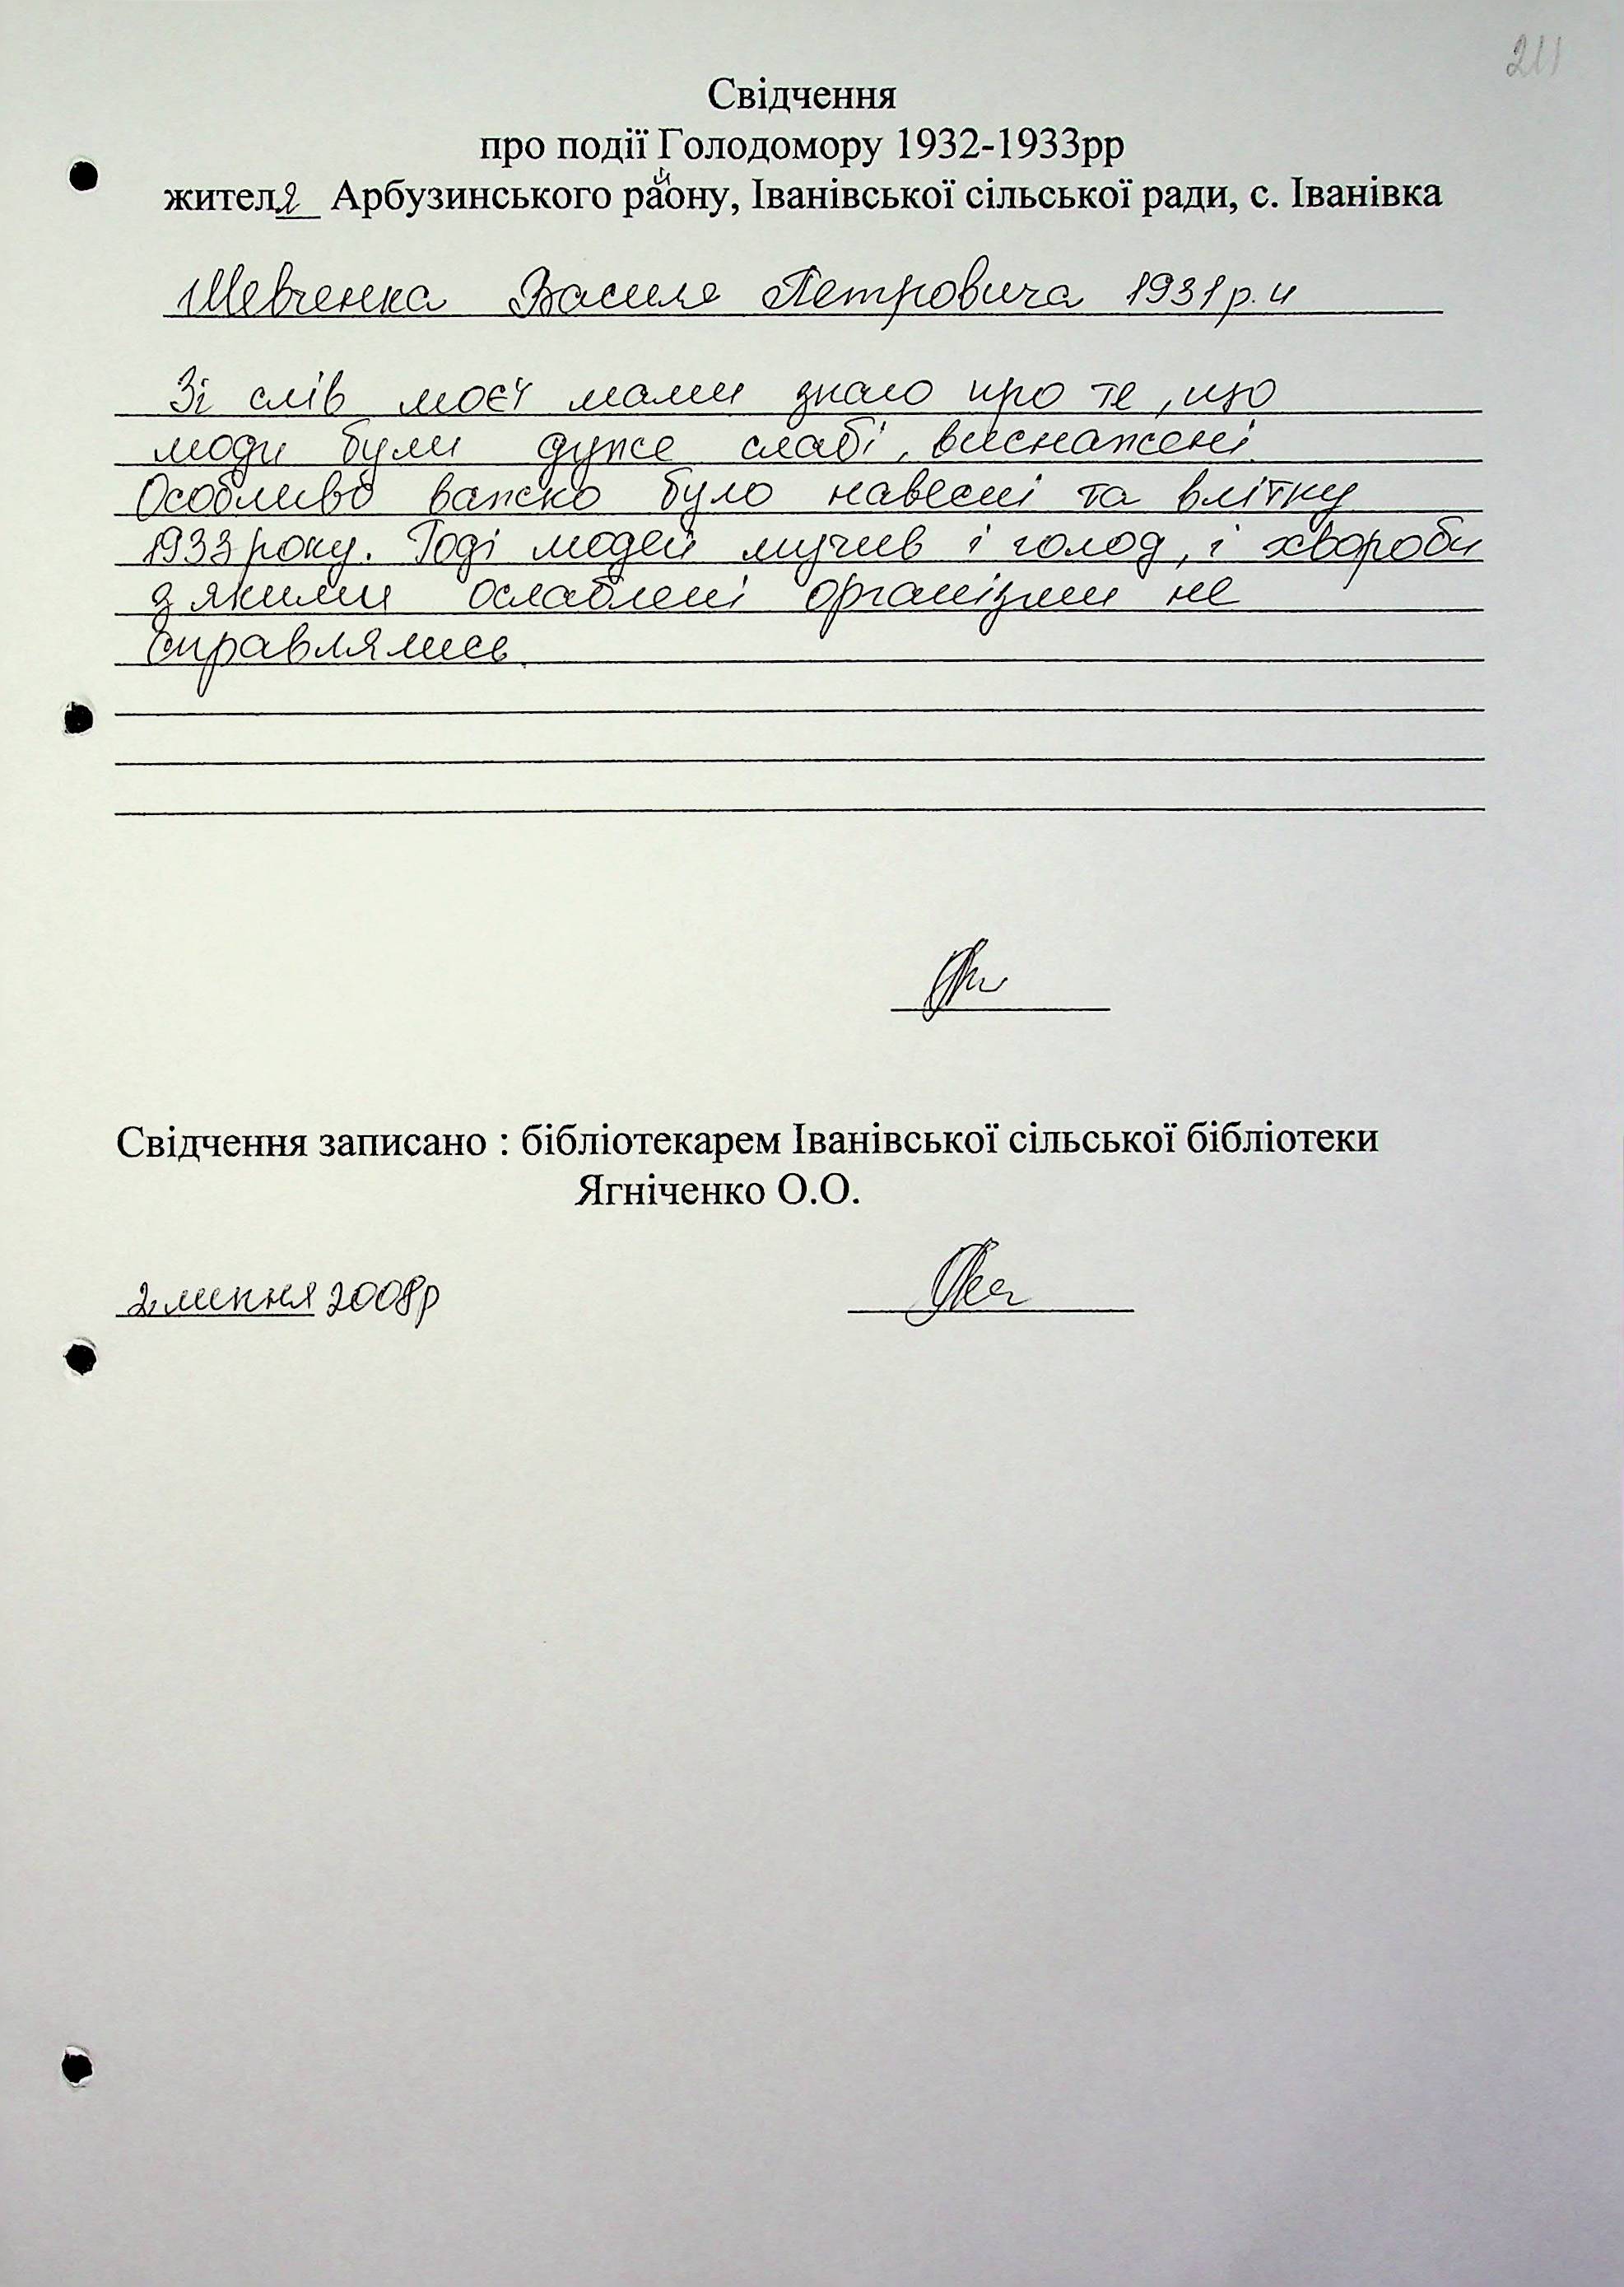 211
Свідчення
про події Голодомору 1932-1933рр
жителя Арбузинського району, Іванівської сільської ради, с. Іванівка
Шевченка Василя Петровича 1931р.н
Зі слів моєї мами знаю про те, що
люди були дуже слабі, виснажені.
Особливо важко було навесні та влітку
1933 року. Тоді людей мучив і голод, і хвороби
з якими ослаблені організми не
справлялись.
Свідчення записано : бібліотекарем Іванівської сільської бібліотеки
Ягніченко О.О.
2 липня 2008р